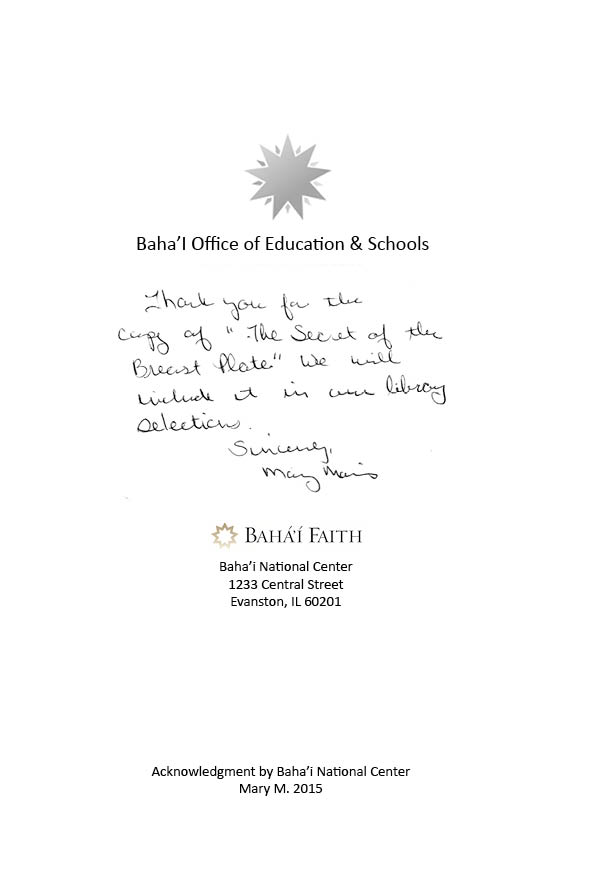 Baha’I Office of Education & Schools
Thank you for the
copy of "The Secret of the
Breast Plate" We will
include it in our library
selections.
Sincerely,
Mary
BAHÁ’Í FAITH
Baha’i National Center
1233 Central Street
Evanston, IL 60201
Acknowledgment by Baha’i National Center
Mary M. 2015